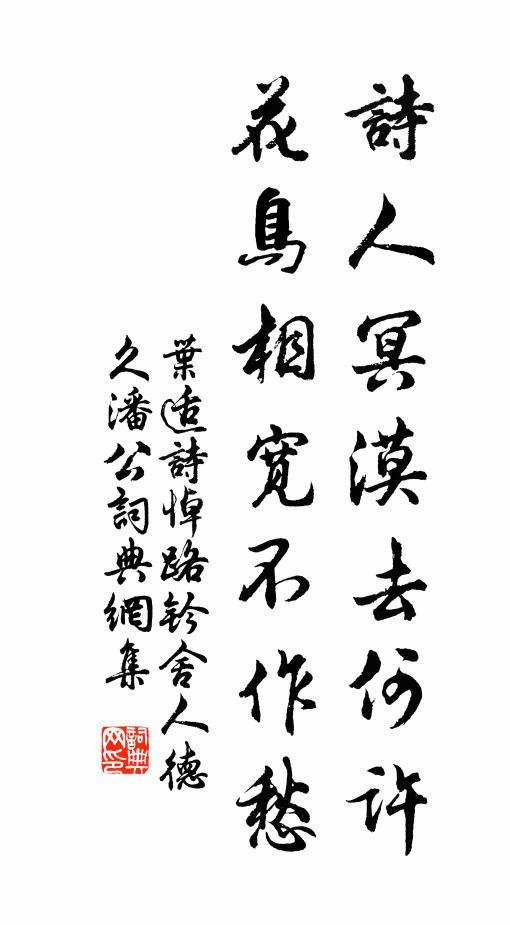 詩人冥漠去何許
花鳥相寬不作愁
葉适詩悼路鈐舍人德
久潘公詞典網集
詞典網印